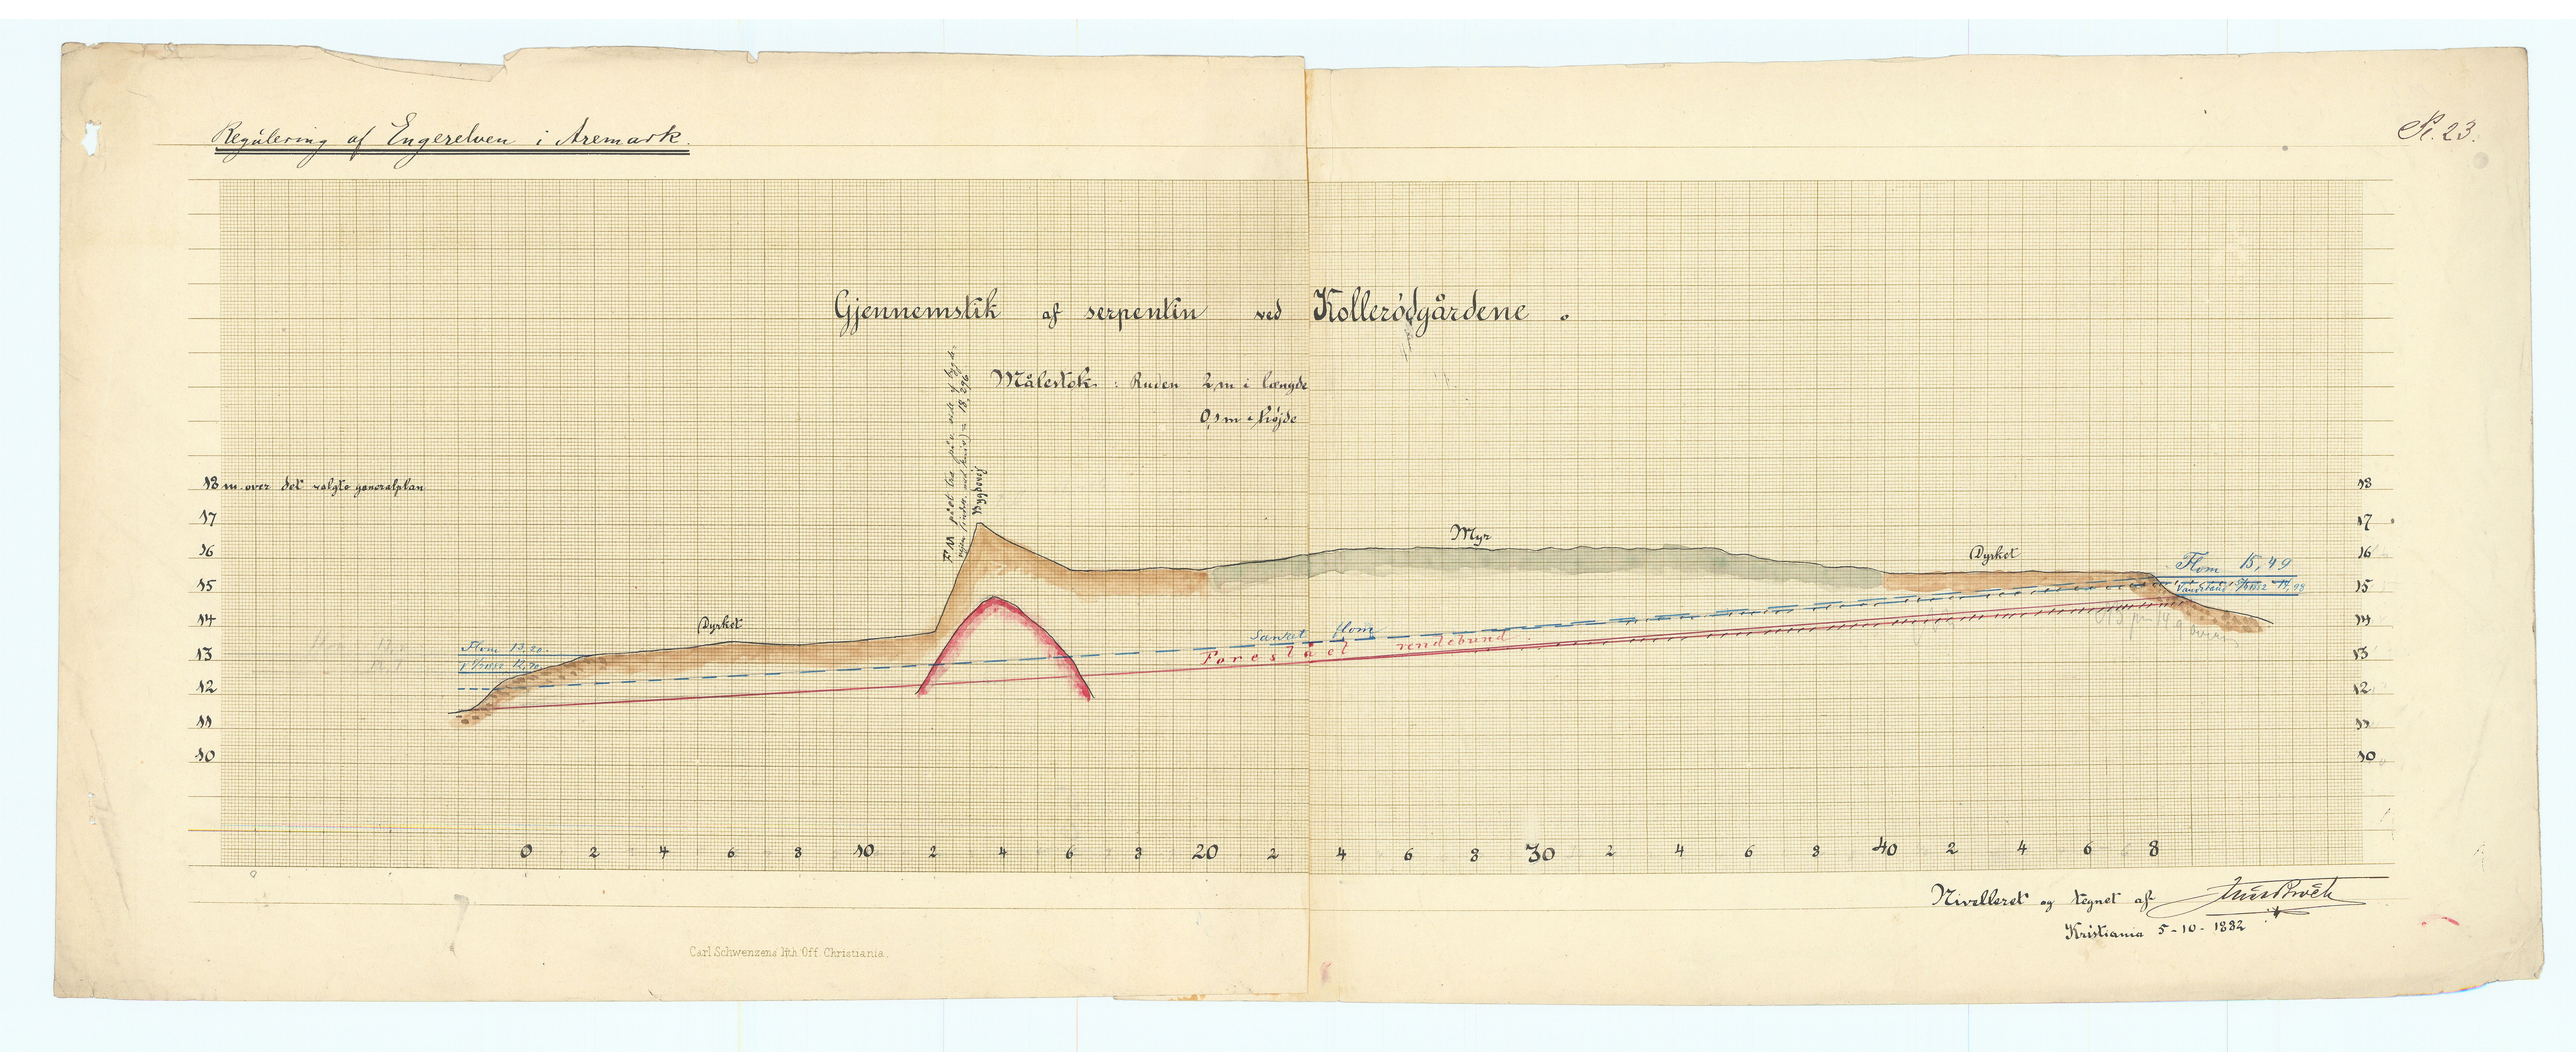 Regulering af Engerelven i Aremark.
Pl. 23.
Gjennemstik af serpentin ved Kollerödgårdene.
Målestok : Ruden 2 m i længde
0,1 m " højde
18 m. over det valgte generalplan
18
17
17
16
16
15
15
14
14
13
13
12
12
11
11
10
10
FM på et træ på v. side af bygde-
vejen = 18,296
Bygdevej
Myr
Dyrket
Dyrket
Flom 15,49
Vandstand 14,98
Flom 13,20
12,70
Sænket flom
Foreslået rendebund
0 2 4 6 8 10 2 4 6 8 20 2 4 6 8 30 2 4 6 8 40 2 4 6 8
Nivelleret og tegnet af
Kristiania 5-10-1882
Carl Schwenzens lith. Off. Christiania.